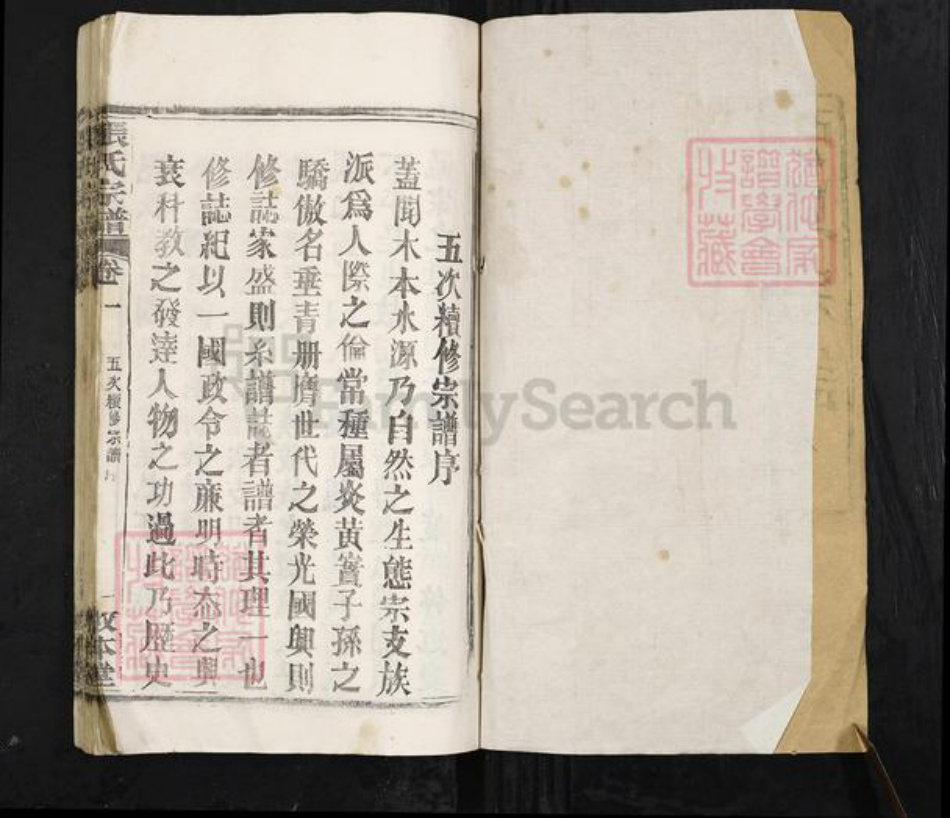 五次續修宗譜序
蓋聞木本水源乃自然之生態宗支族
派爲人際之倫常種屬炎黃實子孫之
驕傲名垂青册膺世代之榮光國興則
修誌家盛則系譜誌者譜者其理一也
修誌紀以一國政令之廉明時态之興
衰科教之發達人物之功過此乃歷史
張氏宗譜
卷一
五次續修宗譜序
一
敦本堂
譜學會
收藏
FamilySearch